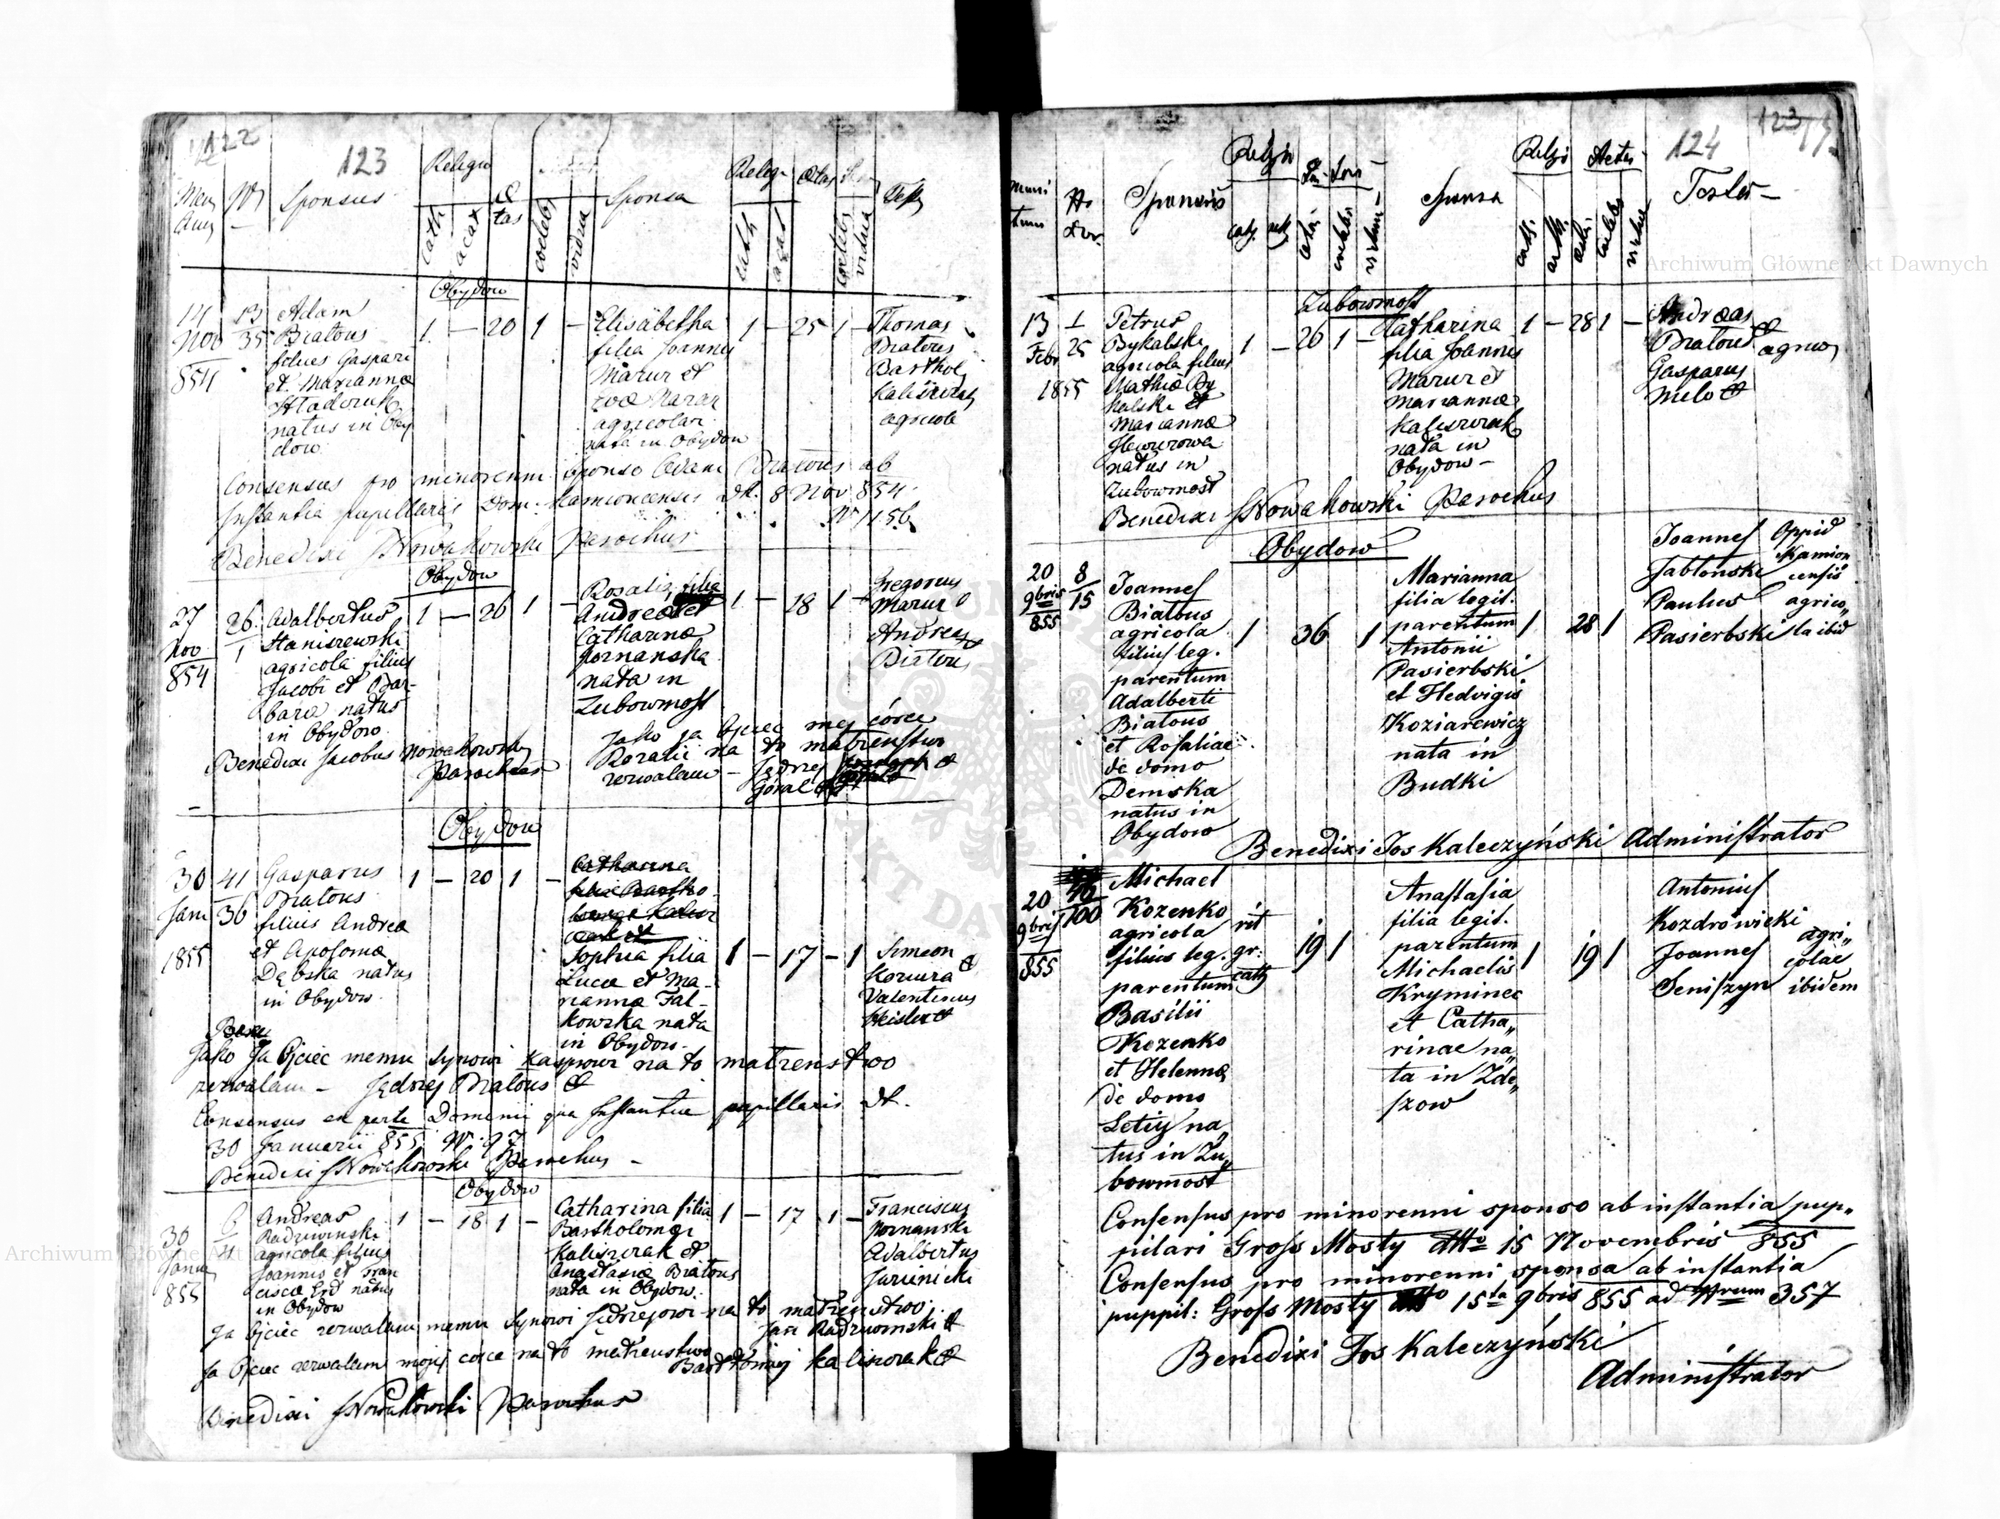 122
123
Religio
Sponsus
Sponsa
Relig
Aetas
Test
cath
acat
tas
coelebs
vidua
cath
acat
coelebs
vidua
Obydow
14
Nov
854
13
35
Adam
Białous
filius Gaspari
et Marianna
natus in Oby
dow
1 — 20 1 —
Elisabetha
filia Joannis
Mazur et
agricolar
nata in Obydow
1 — 25 1 —
Thomas
Białous
Barthol
Kaliszczak
agricola
Consensus pro minorenni sponso Adam Białous ab
Instantia pupillaris Dom. Kamioncensis dt. 8 Nov 854
N 1156
Benedixi J Nowakowski Parochus
Obydow
27
Nov
854
26
1
Adalbertus
Staniszewski
agricola filius
Jacobi et Bar-
bara natus
in Obydow
1 — 26 1 —
Rosalia filia
Andrea et
Catharina
Poznanska
nata in
Zubowmost
1 — 18 1 —
Gregorius
Mazur
Andreas
Białous
Benedixi Jacobus Nowakowski
Parochus
Jako ja Ojciec mej córce
Rozalii na to małżeństwo
zezwalam — Jędrzej
Góral
Obydow
30
Jan
1855
41
36
Gasparus
Białous
filius Andrea
et Apolonia
Dębska natus
in Obydow
1 — 20 1 —
Catharina
Sophia filia
Luca et Ma-
rianna Fal-
kowska nata
in Obydow
1 — 17 — 1
Simeon
Valentinus
Jako Ja Ojciec memu Synowi Kasprowi na to małżenstwo
zezwalam — Jędrzej Białous
Consensus ex parte Dominii qua Instantia pupillaris dt.
30 Januarii 855 N. 97
Benedixi J Nowakowski Parochus —
Obydow
30
Janu
855
6
11
Andreas
Radziwinski
agricola filius
Joannis et Fran
cisca natus
in Obydow
1 — 18 1 —
Catharina filia
Bartholomei
Kaliszczak et
Anastasia Białous
nata in Obydow
1 — 17 1 —
Franciscus
Poznanski
Adalbertus
Ja Ojciec zezwalam memu Synowi Jędrzejowi na to małżenstwo
Jan Radziwinski
Ja Ojciec zezwalam mojej córce na to małżeństwo
Bartłomiej Kaliszczak
Benedixi J Nowakowski Parochus
123
124
Religio
Sponsus
Religio
Sponsa
Testes
Zubowmost
13
Febr
1855
1
25
Petrus
Bykalski
agricola filius
Mathia By
kalski et
Marianna
natus in
Zubowmost
1 — 26 1 —
Catharina
filia Joannis
Mazur et
Marianna
Kaliszczak
nata in
Obydow —
1 — 28 1 —
Andreas
Białous
agricol
Gasparus
Benedixi J Nowakowski Parochus
Obydow
20
9bris
855
8
15
Joannes
Białous
agricola
filius leg.
parentum
Adalberti
Białous
et Rosaliae
de domo
Demska
natus in
Obydow
1 36 1
Marianna
filia legit.
parentum
Antonii
Pasierbski
et Hedvigis
Koziarewicz
nata in
Budki
1 28 1
Joannes Oppid
Jabłonski Kamion
censis
Paulus agrico„
Pasierbski la ibid
Benedixi Jos Kaleczyński Administrator
20
9bris
855
46
100
Michael
Kozenko
agricola
filius leg.
parentum
Basilii
Kozenko
et Helenna
de domo
Letiy na„
tus in Zu„
bowmost
rit
gr.
cath
19 1
Anastasia
filia legit.
parentum
Michaelis
Kryminec
et Catha„
rinae na„
ta in Zde„
szow
1 19 1
Antonius
Kozdrowicki
agri„
Joannes colae
Seniszyn ibidem
Consensus pro minorenni sponso ab instantia pup„
pilari Gross Mosty dtto 15 Novembris 855
Consensus pro minorenni sponsa ab instantia
puppil: Gross Mosty dtto 15ta 9bris 855 ad Nrum 357
Benedixi Jos Kaleczyński
Administrator
Archiwum Główne Akt Dawnych
Archiwum Główne Akt